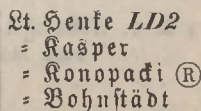 Lt. Henke LD2
= Kasper
= Konopacki Ⓡ
= Bohnstädt